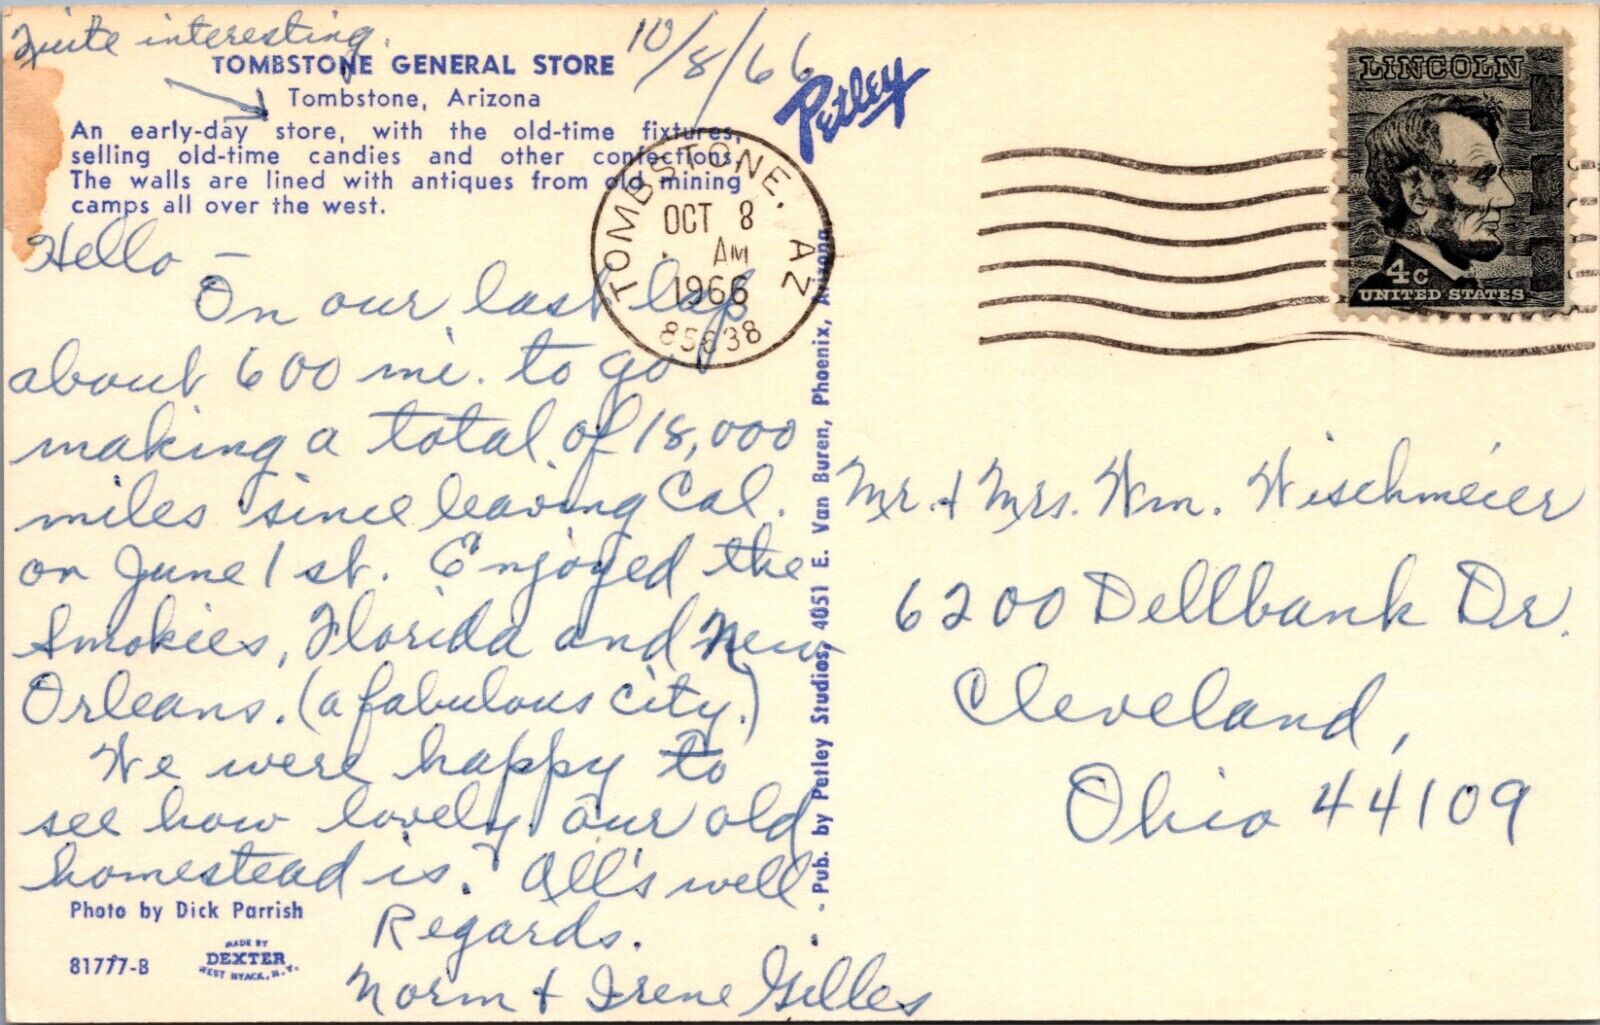 Quite interesting.
10/8/66
TOMBSTONE GENERAL STORE
Tombstone, Arizona
An early-day store, with the old-time fixtures,
selling old-time candies and other confections.
The walls are lined with antiques from old mining
camps all over the west.
Petley
TOMBSTONE, AZ
OCT 8
AM
1966
85638
LINCOLN
4c
UNITED STATES
Hello —
On our last lap
about 600 mi. to go
making a total of 18,000
miles since leaving Cal.
on June 1st. Enjoyed the
Smokies, Florida and New
Orleans. (a fabulous city.)
We were happy to
see how lovely our old
homestead is. All's well
Regards.
Norm + Irene Gilles
Pub. by Petley Studios, 4051 E. Van Buren, Phoenix, Arizona.
Mr. + Mrs. Wm. Wischmeier
6200 Dellbank Dr.
Cleveland,
Ohio 44109
Photo by Dick Parrish
81777-B
MADE BY
DEXTER
WEST NYACK, N.Y.